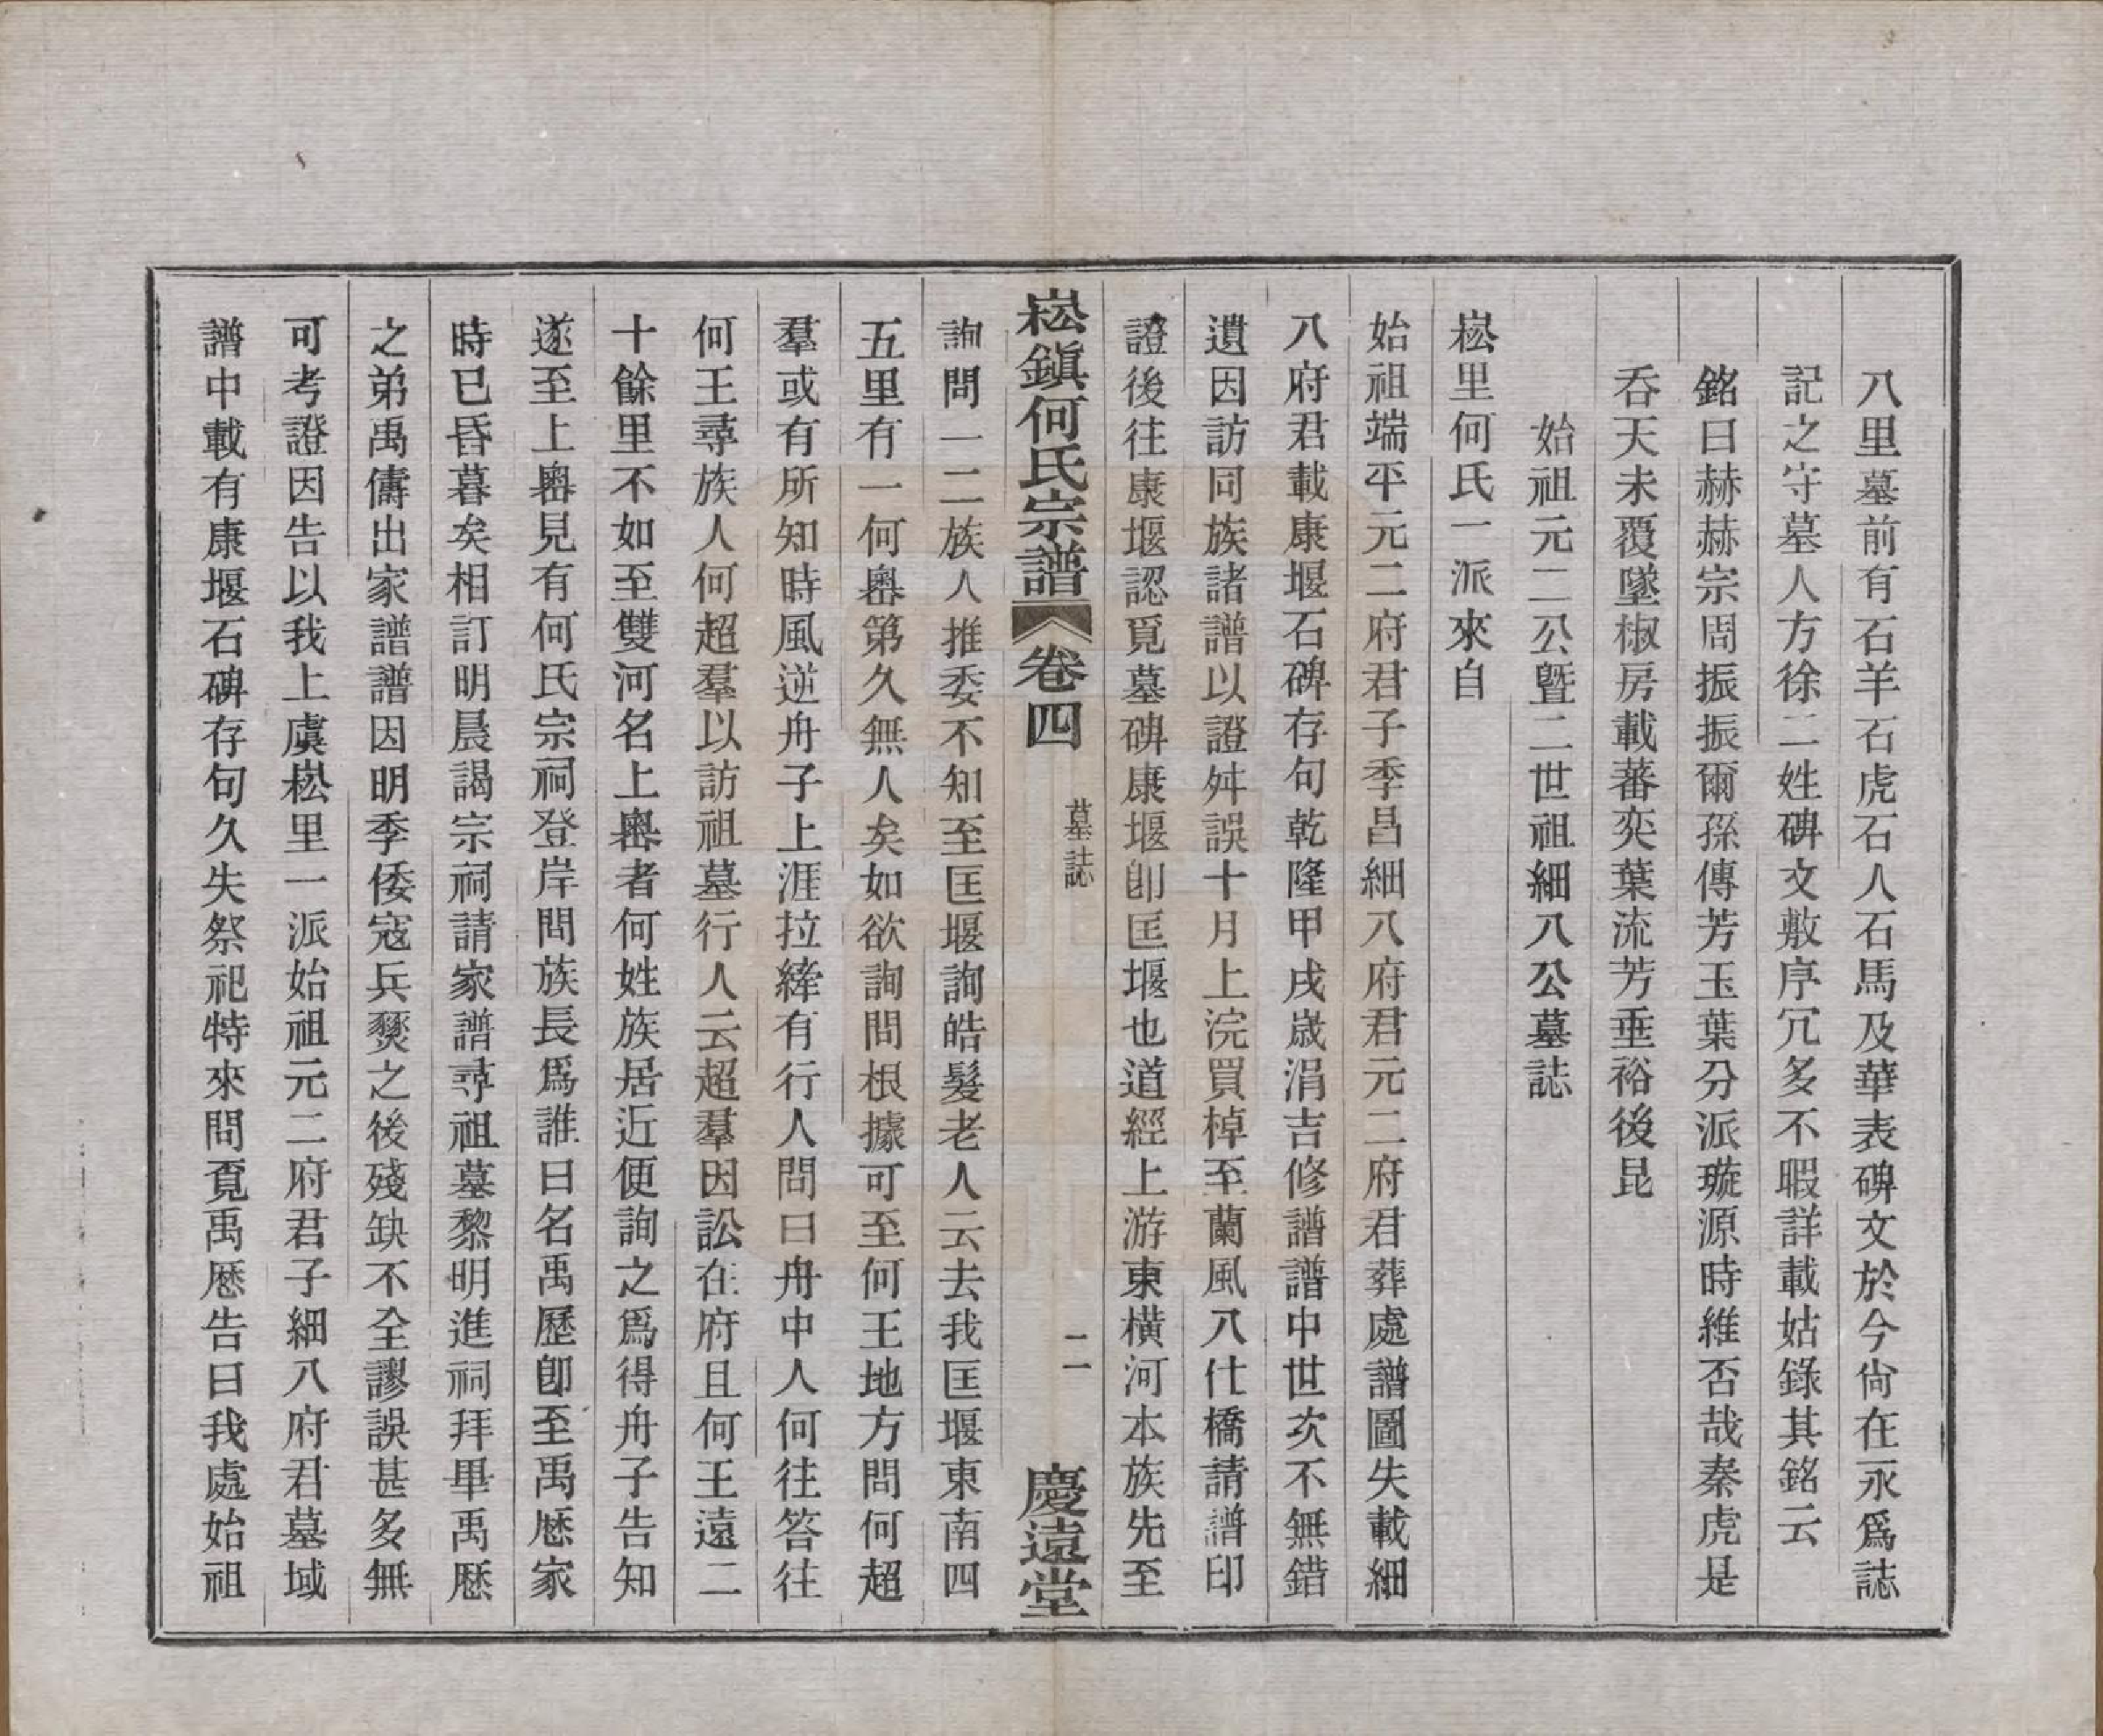 八里墓前有石羊石虎石人石馬及華表碑文於今尙在永爲誌
記之守墓人方徐二姓碑文敷序冗多不暇詳載姑錄其銘云
銘曰赫赫宗周振振爾孫傳芳玉葉分派璇源時維否哉秦虎是
吞天未覆墜椒房載蕃奕葉流芳垂裕後昆
始祖元二公曁二世祖細八公墓誌
崧里何氏一派來自
始祖端平元二府君子季昌細八府君元二府君葬處譜圖失載細
八府君載康堰石碑存句乾隆甲戌歲涓吉修譜譜中世次不無錯
遺因訪同族諸譜以證舛誤十月上浣買棹至蘭風八仕橋請譜印
證後往康堰認覓墓碑康堰卽匡堰也道經上游東橫河本族先至
崧鎭何氏宗譜 卷四 墓誌 二 慶遠堂
詢問一二族人推委不知至匡堰詢皓髮老人云去我匡堰東南四
五里有一何㠗第久無人矣如欲詢問根據可至何王地方問何超
羣或有所知時風逆舟子上涯拉縴有行人問曰舟中人何往答往
何王尋族人何超羣以訪祖墓行人云超羣因訟在府且何王遠二
十餘里不如至雙河名上㠗者何姓族居近便詢之爲得舟子告知
遂至上㠗見有何氏宗祠登岸問族長爲誰曰名禹歷卽至禹歷家
時已昏暮矣相訂明晨謁宗祠請家譜尋祖墓黎明進祠拜畢禹歷
之弟禹儔出家譜譜因明季倭寇兵燹之後殘缺不全謬誤甚多無
可考證因告以我上虞崧里一派始祖元二府君子細八府君墓域
譜中載有康堰石碑存句久失祭祀特來問覔禹歷告曰我處始祖